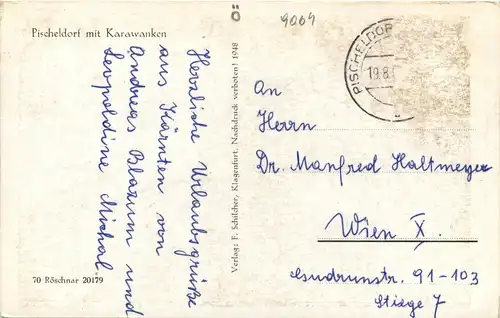 Pischeldorf mit Karawanken
Ö
9064
Herzliche Urlaubsgrüße
aus Kärnten von
Andreas Blazum und
Leopoldine Michal.
70 Röschnar 20179
Verlag: F. Schilcher, Klagenfurt. Nachdruck verboten! 1948
PISCHELDOR
19.8.
An
Herrn
Dr. Manfred Haltmeyer
Wien X.
Gudrunstr. 91-103
Stiege 7